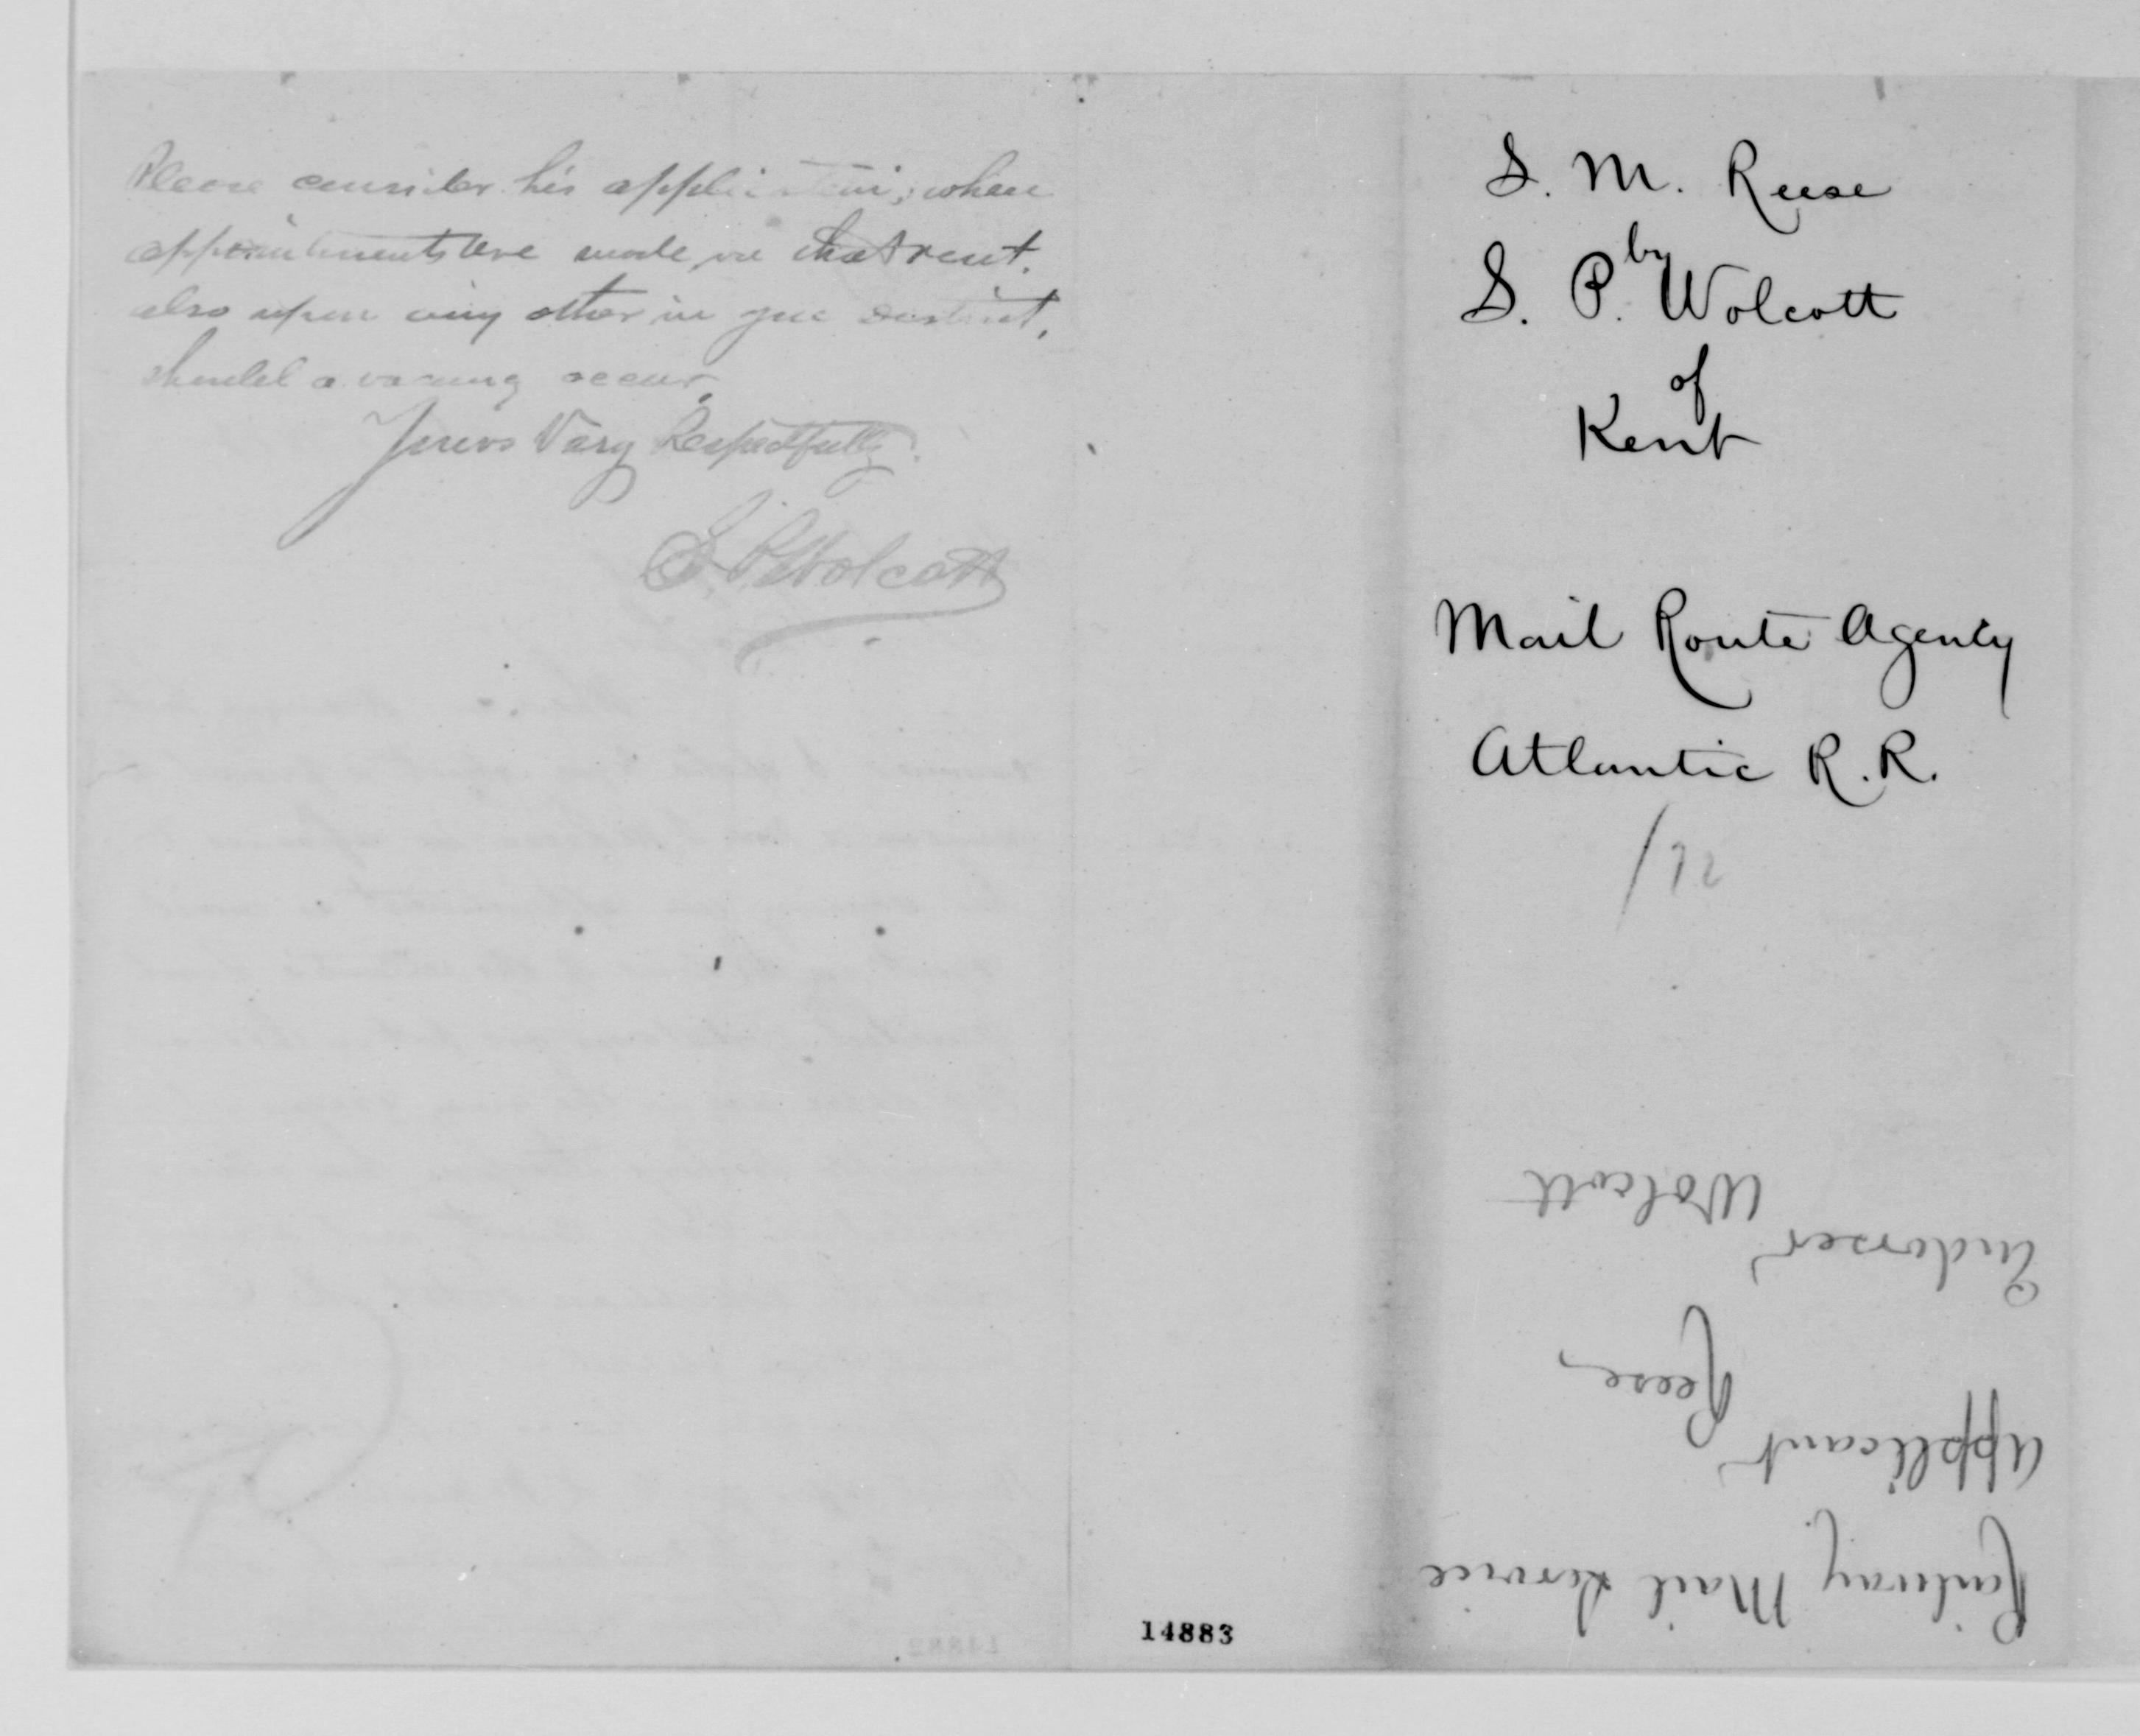 Please consider his application, when
appointments are made on that rout.
also upon any other in your district,
should a vacancy occur,
Yours Very Respectfully.
S. P. Wolcott
S. M. Reese
by
S. P. Wolcott
of
Kent
Mail Route Agency
Atlantic R.R.
/72
14883
Railway Mail Service
Applicant
Reese
Endorser
Wolcott